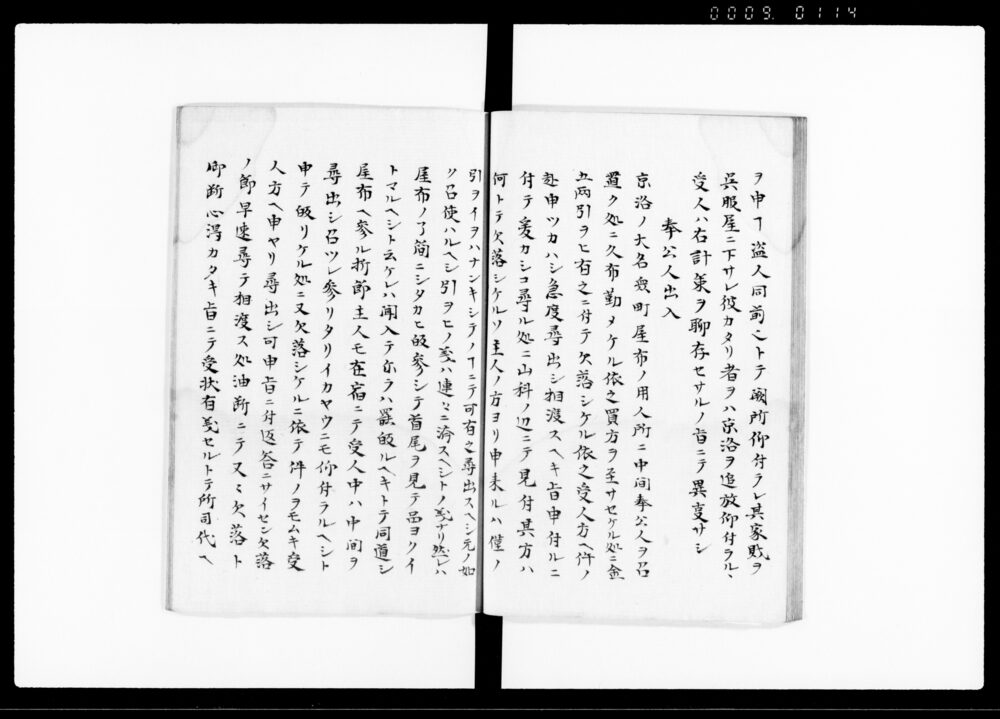 0009. 0114
ヲ申ヿ盗人同前之トテ闕所仰付ラレ其家賎ヲ
呉服屋ニ下サレ彼カタリ者ヲハ京洛ヲ追放仰付ラル、
受人ハ右計策ヲ聊存セサルノ旨ニテ異変サシ
奉公人出入
京洛ノ大名町屋布ノ用人所ニ中間奉公人ヲ召
置ク処ニ久布勤メケル依之買方ヲ至サセケル処ニ金
五両引ヲヒ有之ニ付テ欠落シケル依之受人方ヘ件ノ
趣申ツカハシ急度尋出シ相渡スヘキ旨申付ルニ
付テ爰カシコ尋ル処ニ山科ノ辺ニテ見付其方ハ
何トテ欠落シケルソ主人ノ方ヨリ申来ルハ僅ノ
引ヲイヲハナンキシテノヿニテ可有之尋出スヘシ元ノ如
ク召使ハルヘシ引ヲヒノ義ハ連々ニ済スヘシトノ義ナリ然レハ
屋布ノ了簡ニシタカヒ帰参シテ首尾ヲ見テ品ヨクイ
トマルヘシト云ケレハ聞入テ尓ラハ罷帰ルヘキトテ同道シ
屋布ヘ参ル折節主人モ在宿ニテ受人申ハ中間ヲ
尋出シ召ツレ参リタリイカヤウニモ仰付ラルヘシト
申テ帰リケル処ニ又欠落シケルニ依テ件ノヲモムキ受
人方ヘ申ヤリ尋出シ可申旨ニ付返答ニサイセン欠落
ノ節早速尋テ相渡ス処油断ニテ又々欠落ト
御断心得カタキ旨ニテ受状有義セルトテ所司代ヘ